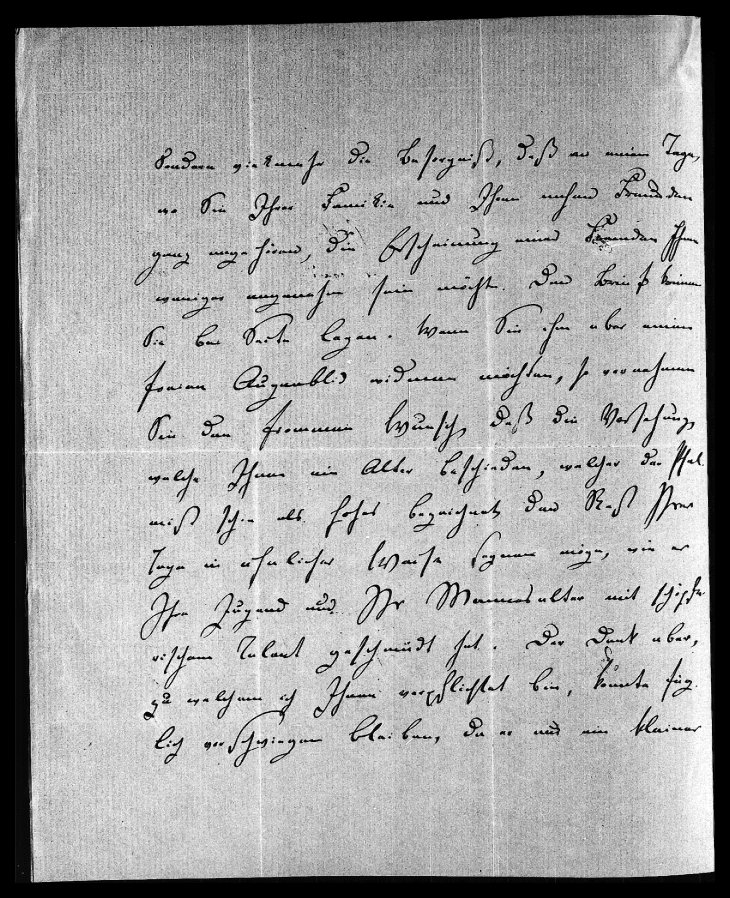 sondern vielmehr die Besorgniß, daß an einem Tage,
wo Sie Ihrer Familie und Ihren nahen Freunden
ganz angehören, die Erscheinung eines Fremden Ihnen
weniger angenehm sein möchte. Den Brief können
Sie bei Seite legen. Wenn Sie ihm aber einen
freien Augenblick widmen möchten, so vernehmen
Sie den frommen Wunsch, daß die Vorsehung,
welche Ihnen ein Alter beschieden, welches der Psal-
mist schon als hohes bezeichnet den Rest Ihrer
Tage in ähnlicher Weise segnen möge, wie er
Ihre Jugend und Ihr Mannesalter mit schöpfe-
rischem Talent geschmückt hat. Der Dank aber,
zu welchem ich Ihnen verpflichtet bin, könnte füg-
lich verschwiegen bleiben, da er nur ein kleiner